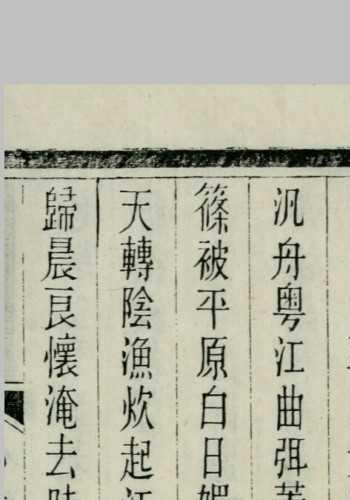 汎舟粵江曲弭
篠被平原白日
天轉陰漁炊起
歸晨良懷淹去